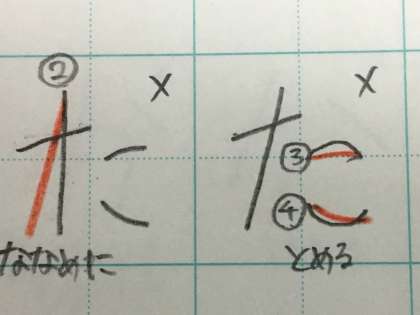 ② × ×
た た
③
④
ななめに とめる